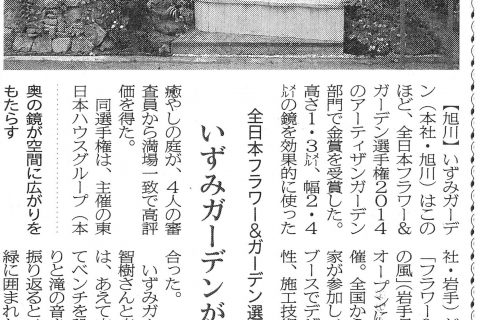 全日本フラワー＆ガーデン選
いずみガーデンが
【旭川】いずみガーデ
ン（本社・旭川）はこの
ほど、全日本フラワー＆
ガーデン選手権2014
のアーティザンガーデン
部門で金賞を受賞した。
高さ1・3㍍、幅2・4
㍍の鏡を効果的に使った
癒やしの庭が、4人の審
査員から満場一致で高評
価を得た。
同選手権は、主催の東
日本ハウスグループ（本
奥の鏡が空間に広がりを
もたらす
社・岩手）
「フラワー
の風」（岩手
オープン
催。全国から
家が参加し
ブースでデ
性、施工技
合った。
いずみガ
智樹さんと
は、あえて
てベンチを
りと滝の音
振り返ると
緑に囲まれ